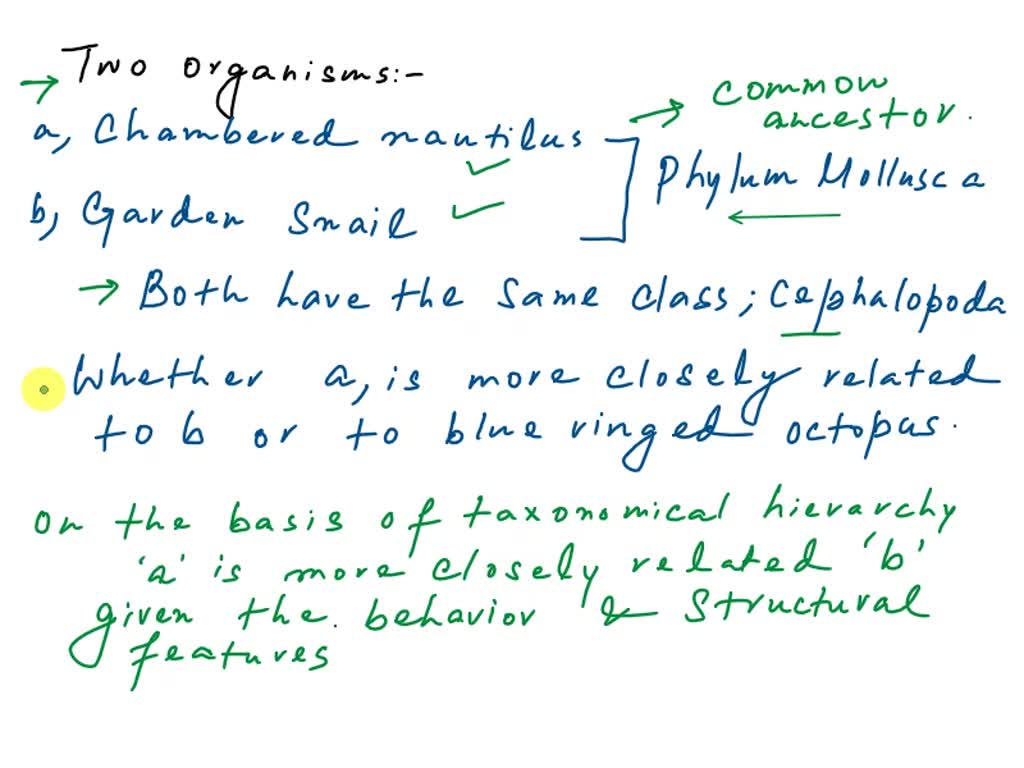 → Two organisms:-
→ common ancestor.
a, Chambered nautilus
Phylum Mollusca
b, Garden Snail
→ Both have the same class; Cephalopoda
Whether a, is more closely related
to b or to blue ringed octopus.
on the basis of taxonomical hierarchy
'a' is more closely related 'b'
given the behavior & structural
features